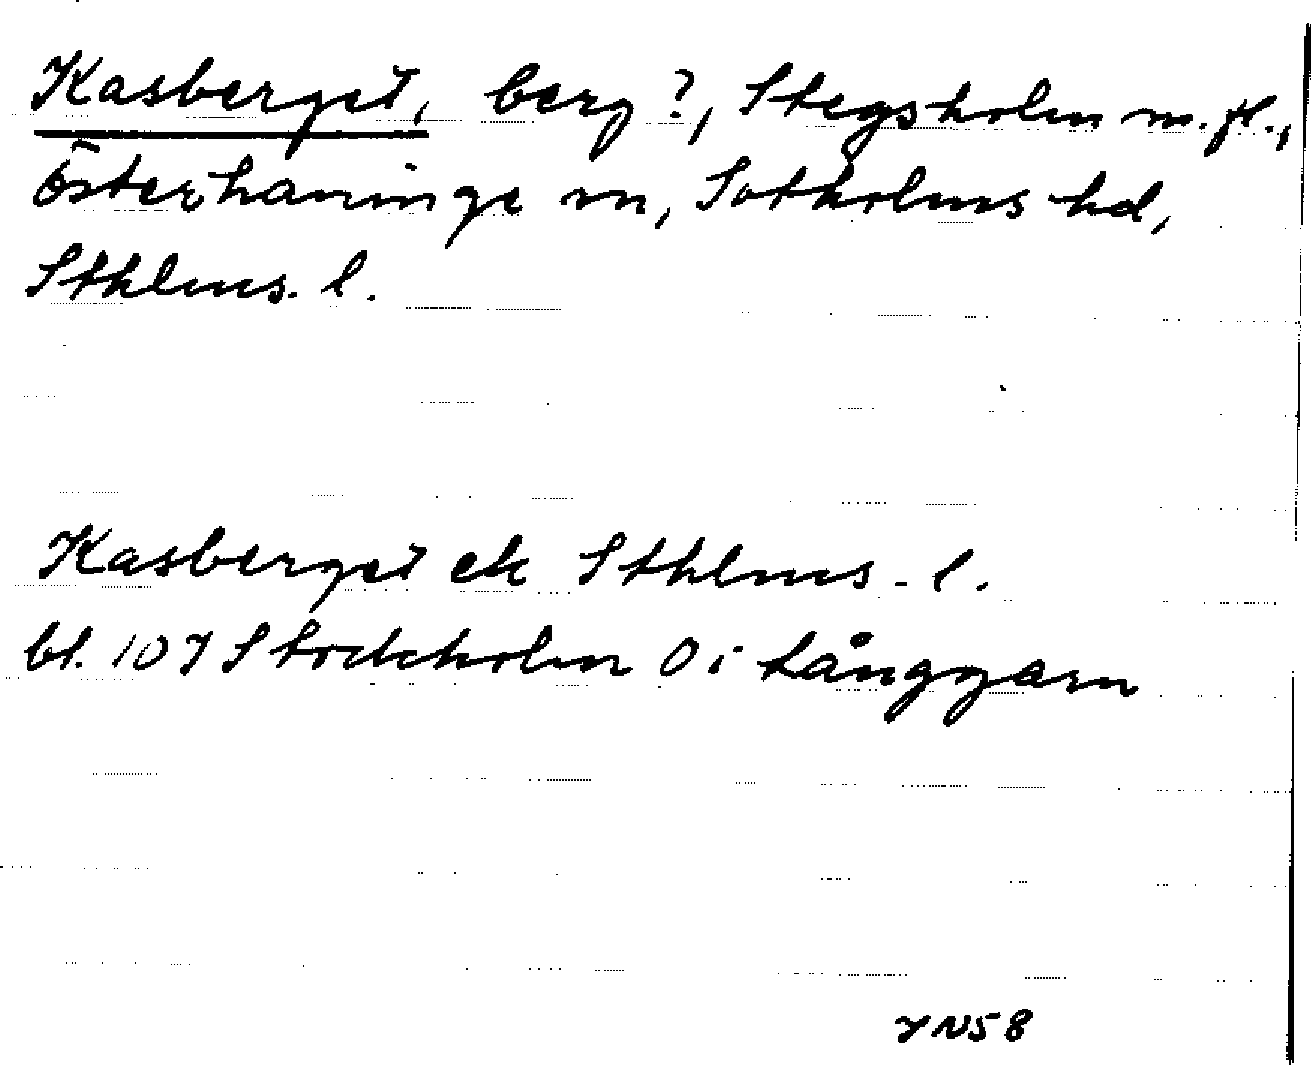 Kasberget, berg?, Stegsholm m.fl.,
Österhaninge sn, Sotholms hd,
Sthlms. l.
Kasberget ek Sthlms - l.
bl. 107 Stockholm O i Långgarn